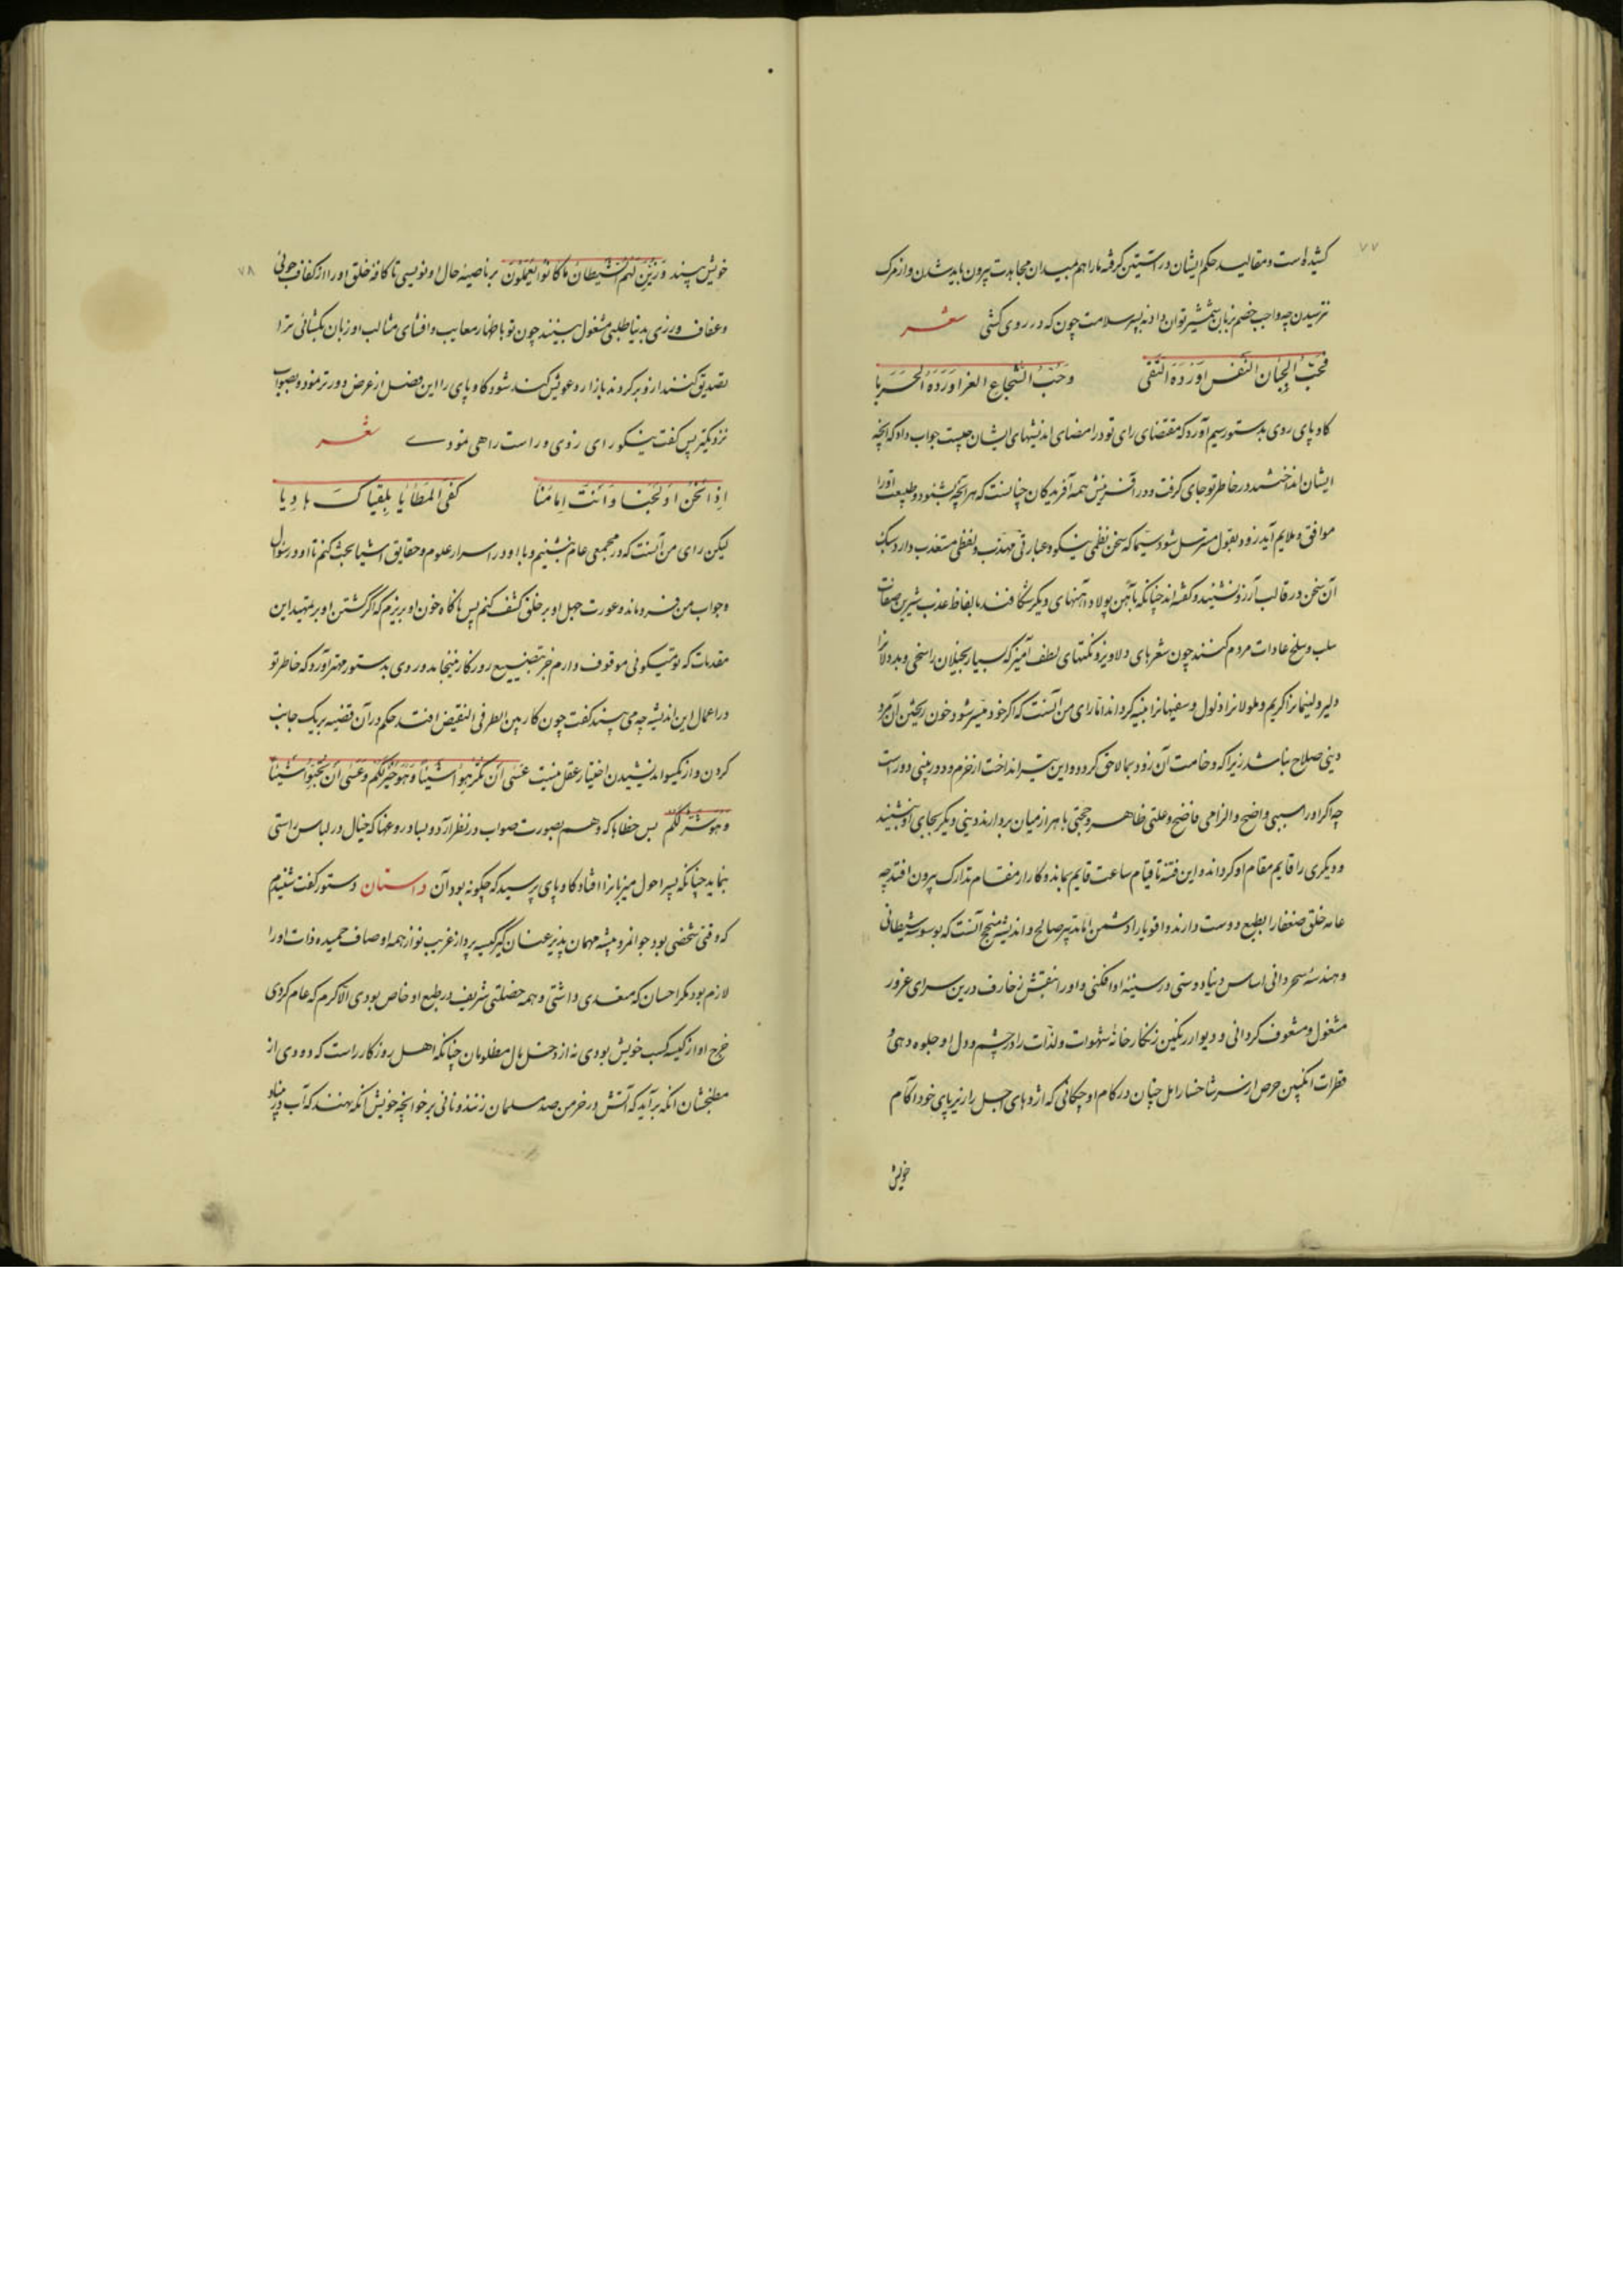 ۷۷
کشیده است و مقالید حکم ایشان در آستین گرفته ما را هم بمیدان مجاهدت بیرون باید شدن و از مرگ
نترسیدن چه واجب خصم بزبان شمشیر توان داد نه بسپر سلامت چون که در روی کشی شعر
فحبّ الجبان النفس اورده التقی وحبّ الشجاع العز اورده الحربا
کاو پای روی بدستور سیم آورد که مقتضای رای تو در امضای اندیشهای ایشان چیست جواب داد که آنچه
ایشان انداختند در خاطر تو جای گرفت و در آفرینش همه آفریدگان چنانست که هر آنچه بشنود و طبیعت او را
موافق و ملایم آید زود بقبول مسترسل شود سیّما که سخن نظمی نیکو و عبارتی مهذب و لفظی مستعذب دارد سبک
آن سخن در قالب آرزو نشیند و گفته اند چنانکه بآهن پولاد آهنهای دیگر شکافند بالفاظ عذب شیرین صفات
سلب و سلخ عادات مردم کنند چون شعرهای دلاویز و نکتهای لطف آمیز که بسیار بخیلان را سخی و بددلانرا
دلیر و لئیمانرا کریم و ملولانرا ذلول و سفیهانرا نبیه گرداند امّا رای من آنست که اگر خود میسر شود خون ریختن آن مرد
دینی صلاح نباشد زیرا که وخامت آن زود بما لاحق گردد و این تیر انداخت از حزم و دوربینی دورست
چه اگر او را بسببی واضح و الزامی فاضح و علتی ظاهر و حجتی باهر از میان بردارند دینی دیگر بجای او بنشیند
و دیگری را قایم مقام او گرداند و این فتنه تا قیام ساعت قایم بماند و کار از مقام تدارک بیرون افتد چه
عامه خلق ضعفا را بطبع دوست دارند و اقویا را دشمن امّا تدبیر صالح و اندیشه منجح آنست که بوسوسه شیطانی
و هندسهٔ سحردانی اساس دنیا دوستی در سینهٔ او افکنی و او را بنقش زخارف درین سرای غرور
مشغول و مشعوف گردانی و دیوار رنگین زنگارخانهٔ شهوات و لذّات را در چشم و دل او جلوه دهی و
قطرات انگبین حرص از سر شاخسار امل چنان در کام او چکانی که اژدهای اجل را زیر پای خود اکام
خویش
۷۸
خویش بیند وزین لهم الشیطان ما کانوا یعملون بر ناصیهٔ حال او نویسی تا کافهٔ خلق او را از کفاف جوئی
و عفاف ورزی بدنیا طلبی مشغول بینند چون تو باظهار معایب و افشای مثالب او زبان بگشائی ترا
تصدیق کنند از و برگردند بازار دعوتش کند شود کاو پای را این فصل از غرض دورتر نمود و بصواب
نزدیکتر پس گفت نیکو رای زدی و راست راهی نمودے شعر
اذا نحن ادلجنا وانت امامنا کفی المطایا بلقیاک هادیا
لیکن رای من آنست که در مجمعی عام بنشینم و با او در اسرار علوم و حقایق اشیا بحث کنم تا او در سؤال
و جواب من فرو ماند و عورت جهل او بر خلق کشف کنم پس آنگاه خون او بریزم که اگر گشتن او بر تمهید این
مقدمات که تو میگوئی موقوف دارم جز بتضییع روزگار نینجامد و روی بدستور مهتر آورد که خاطر تو
در اعمال این اندیشه چه می بیند گفت چون کار بین الطرفی النقیض افتد حکم در آن قضیه بر یک جانب
کردن و از یکسو اندیشیدن اختیار عقل نیست عسی ان تکرهوا شیئا وهو خیر لکم وعسی ان تحبوا شیئا
وهو شر لکم بس خطاها که وهم بصورت صواب در نظر آرد و بسا دروغها که خیال در لباس راستی
بنماید چنانکه پسر احول میزبانرا افتاد کاو پای پرسید که چگونه بود آن داستان دستور گفت شنیدم
که وقتی شخصی بود جوانمرد پیشه مهمان پذیر عنان گیر کیسه پرداز غریب نواز همه اوصاف حمیده ذات او را
لازم بود مگر احسان که متعدی داشتی و همه خصلتی شریف در طبع او خاص بودی الّا کرم که عام کردی
خرج او از کیسه کسب خویش بودی نه از دخل مال مظلومان چنانکه اهل روزگار راست که دودی از
مطبخشان آنگه برآید که آتش در خرمن صد مسلمان زنند و نانی بر خوانچه خویش آنگه نهند که آب در بنیاد